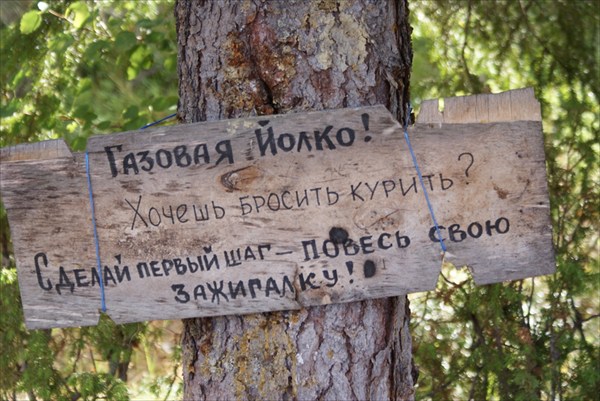 Газовая Йолко!
Хочешь бросить курить?
Сделай первый шаг – повесь свою
зажигалку!